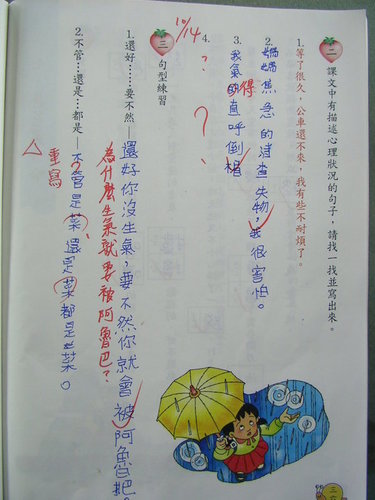 二 課文中有描述心理狀況的句子，請找一找並寫出來。
1. 等了很久，公車還不來，我有些不耐煩了。
2. 媽媽焦急的清查失物，我很害怕。
3. 我氣的直呼倒楣
得
4. ？
？
10/14
三 句型練習
1. 還好……要不然——還好你沒生氣，要不然你就會被阿魯把。
為什麼生氣就要被阿魯巴？
2. 不管…還是…都是——不管是菜還是菜都是菜。
？
△ 重寫
三